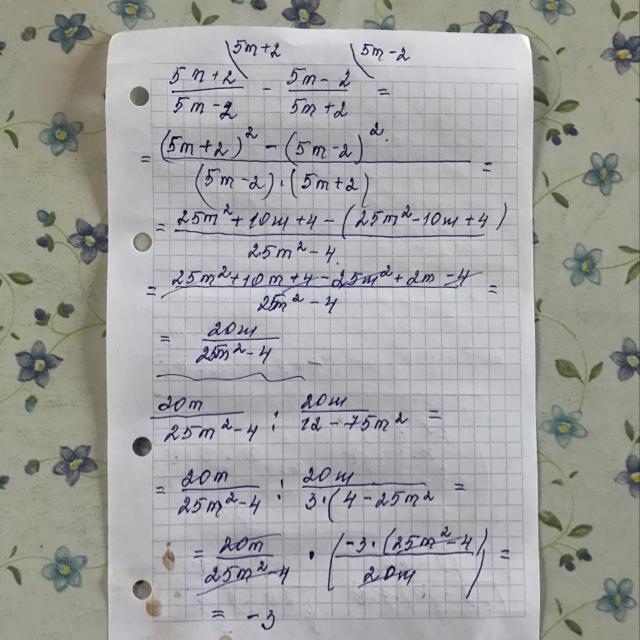 5m+2 5m-2
5m+2/5m-2 - 5m-2/5m+2 =
= (5m+2)² - (5m-2)²/(5m-2)·(5m+2) =
= 25m²+10m+4-(25m²-10m+4)/25m²-4
= 25m²+10m+4-25m²+2m-4/25m²-4 =
= 20m/25m²-4
20m/25m²-4 : 20m/12-75m² =
= 20m/25m²-4 : 20m/3·(4-25m² =
= 20m/25m²-4 · (-3·(25m²-4/20m) =
= -3